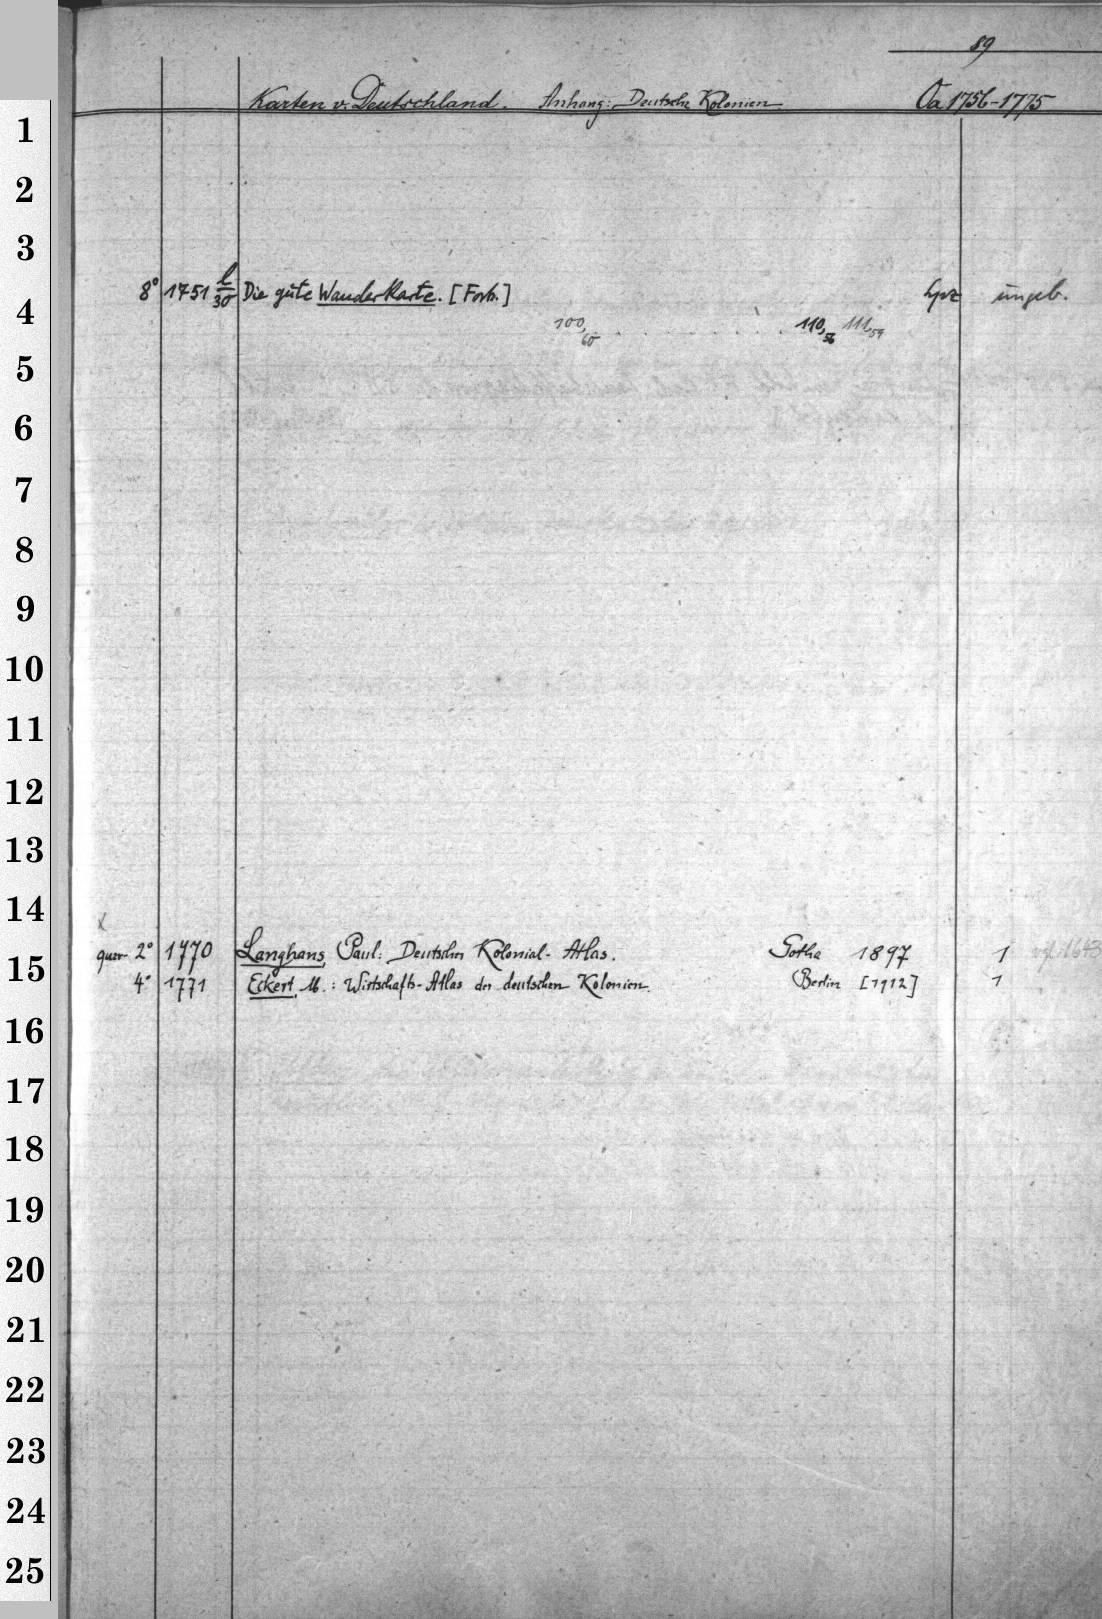 89
Karten v. Deutschland. Anhang: Deutsche Kolonien Oa 1756-1775
1
2
3
8° 1751 l/30 Die gute Wanderkarte. [Forts.] Lpz ungeb.
4
100,60 . . . . . . . . . 110,56 111,59
5
6
7
8
9
10
11
12
13
14
x
quer- 2° 1770 Langhans, Paul: Deutscher Kolonial-Atlas. Gotha 1897 1 vgl. 1643
15
4° 1771 Eckert, M.: Wirtschafts-Atlas der deutschen Kolonien. Berlin [1912] 1
16
17
18
19
20
21
22
23
24
25